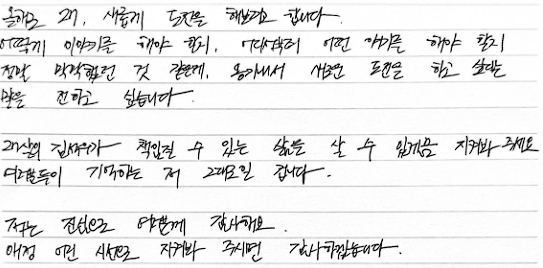 올해로 27, 새롭게 도전을 해보려고 합니다.
어떻게 이야기를 해야 할지, 어디서부터 어떤 얘기를 해야 할지
정말 막막했던 것 같은데, 용기내서 새로운 도전을 하고 싶다는
말을 전하고 싶습니다.
27살의 김서우가 책임질 수 있는 삶을 살 수 있게끔 지켜봐 주세요
여러분들이 기억하는 저 그대로일 겁니다.
저는 진심으로 여러분께 감사해요.
애정 어린 시선으로 지켜봐 주시면 감사하겠습니다.